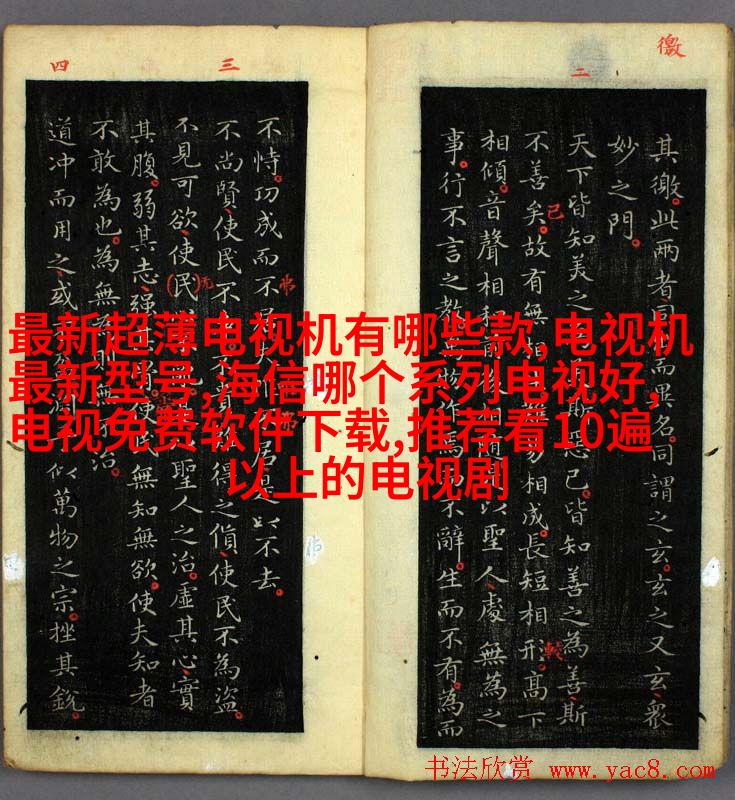 徼
二
其徼。此两者同而異名。同謂之玄。玄之又玄。衆
妙之門。
天下皆知美之斯惡已。皆知善之為善斯
不善矣。故有無相成。長短相形。高下
相傾。音聲相以聖人處無為之
事。行不言之教。不辭。生而不有。為而
三
不恃。功成而不居。是以不去。
不尚賢。使民不得之貨。使民不為盜。
不見可欲。使民聖人之治。虛其心。實
其腹。弱其志。強使無知無欲。使夫知者
不敢為也。為無則無不治。
四
道冲而用之。或似萬物之宗。挫其銳。
最新超薄电视机有哪些款,电视机
最新型号,海信哪个系列电视好,
电视免费软件下载,推荐看10遍
以上的电视剧
书法欣赏 www.yac8.com